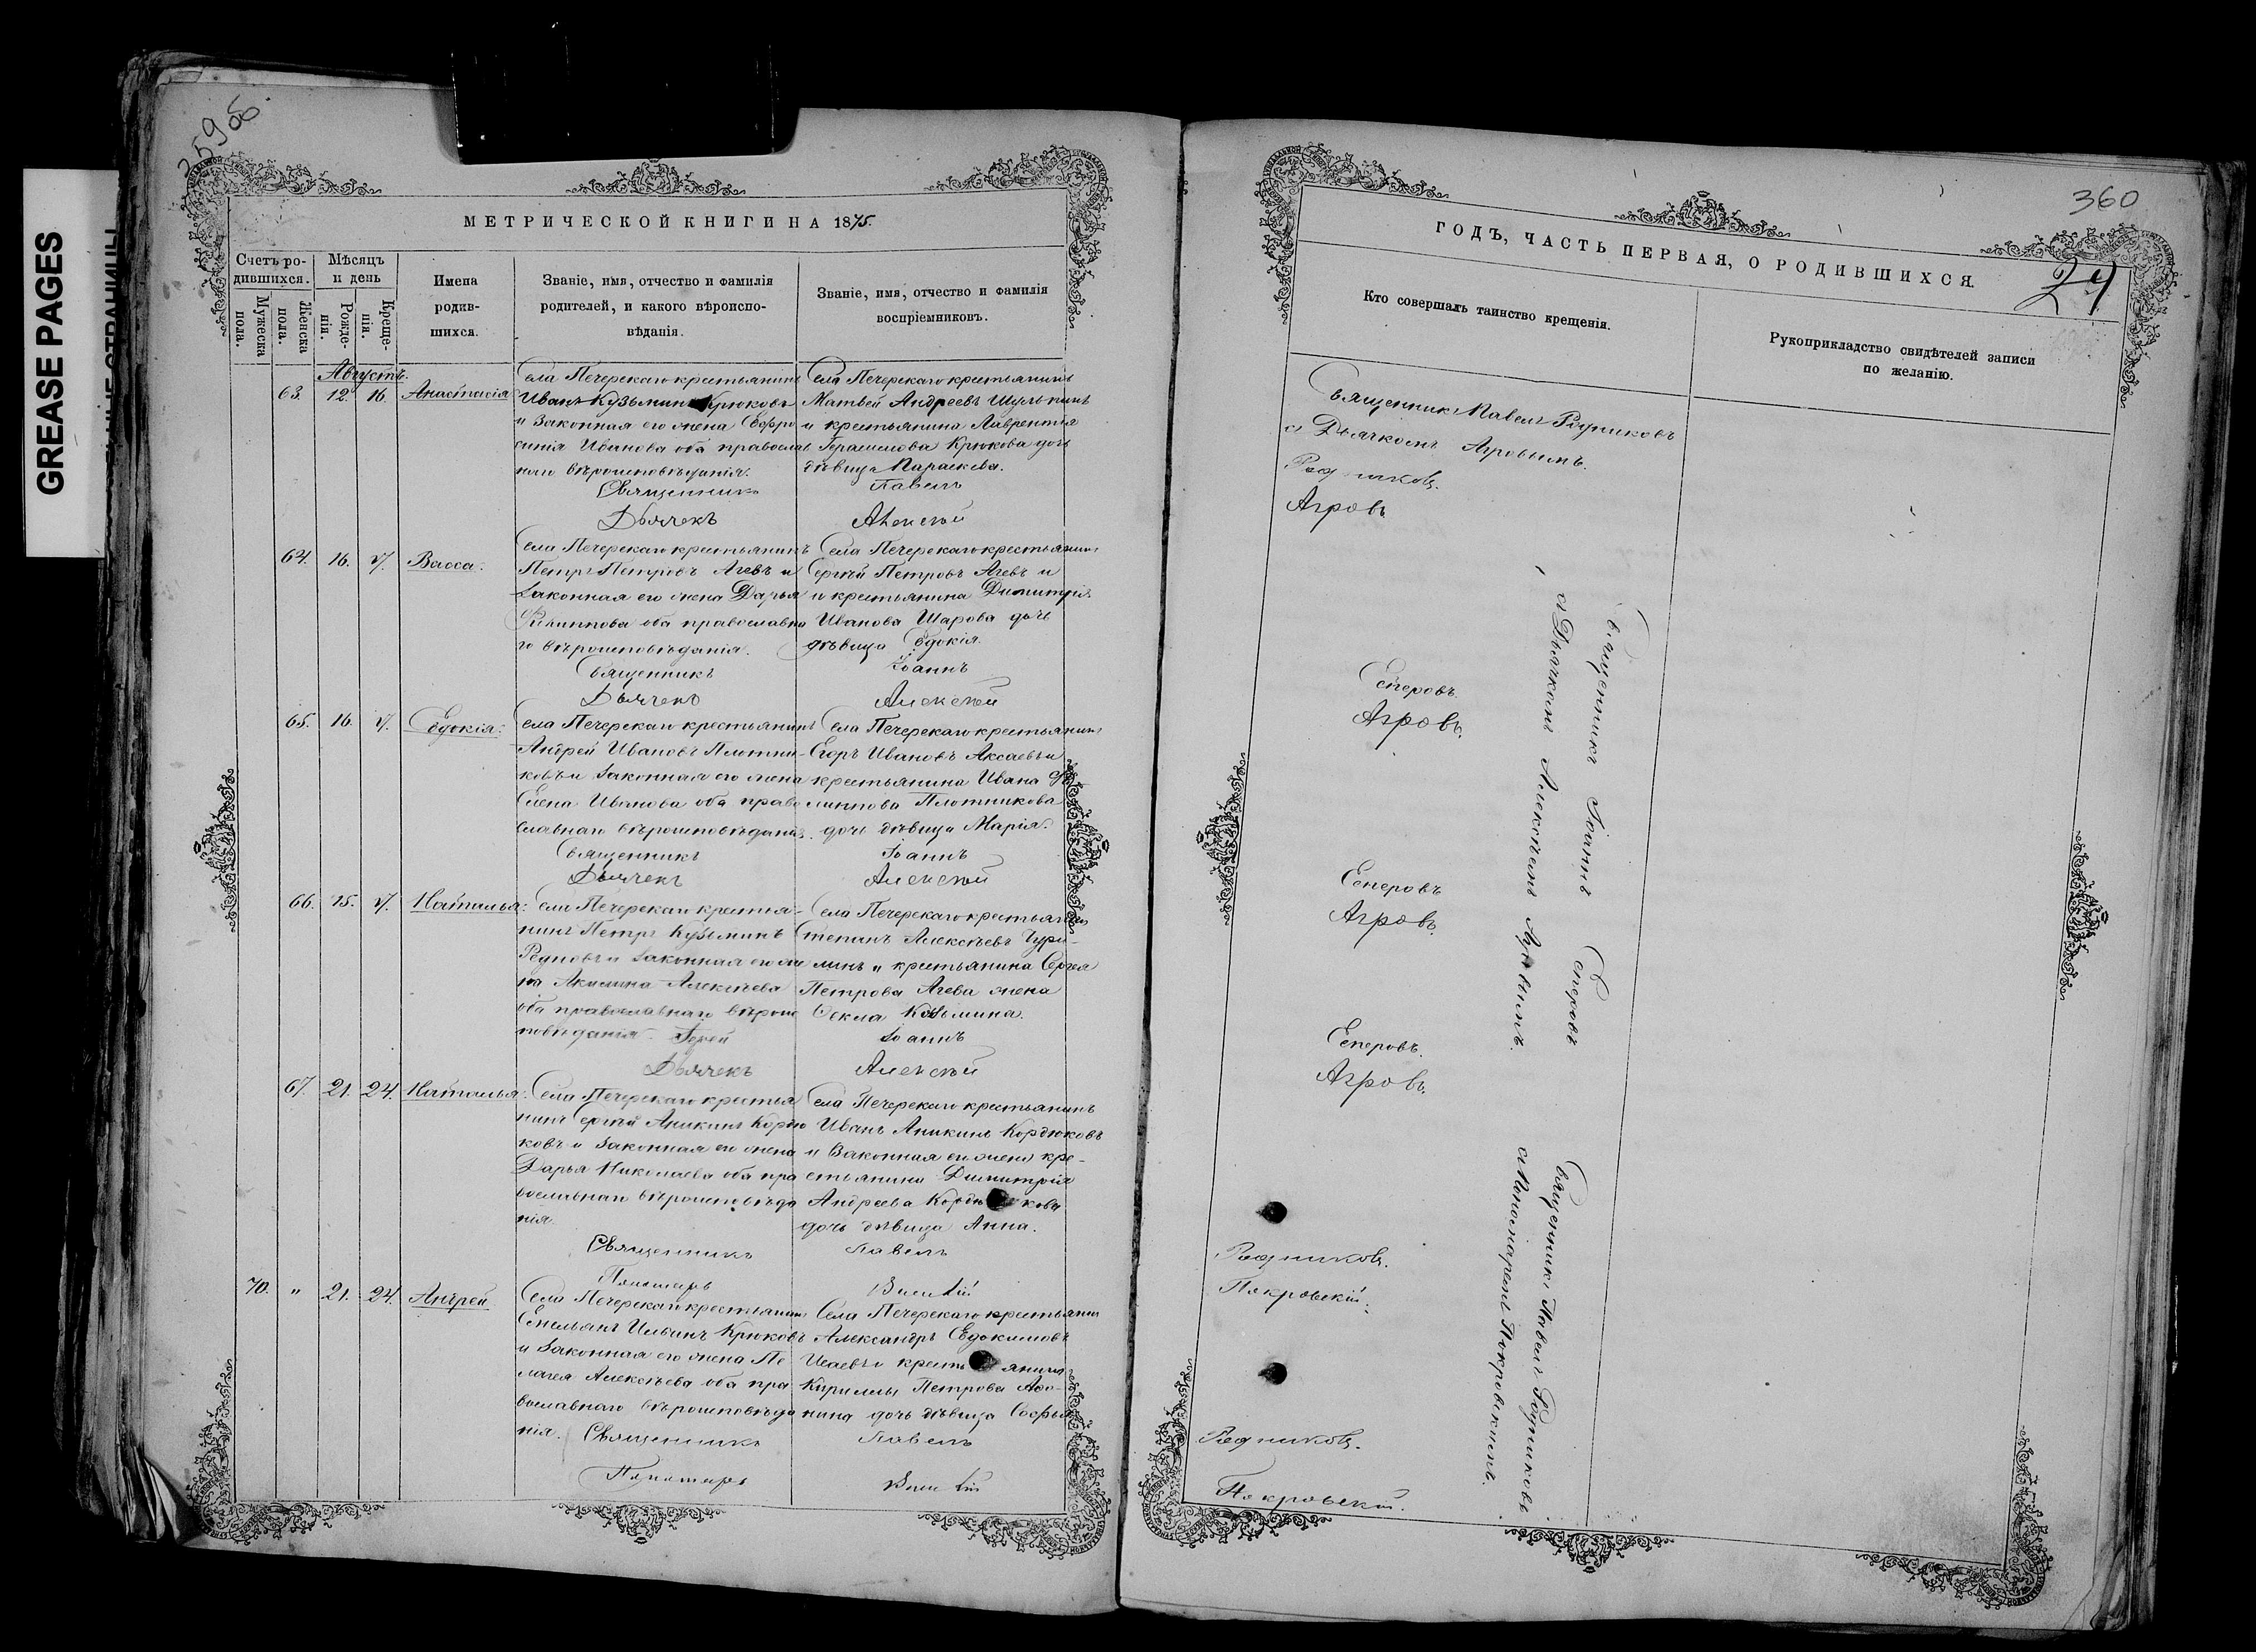 GREASE PAGES
359об
МЕТРИЧЕСКОЙ КНИГИ НА 1875.
Счетъ ро-
дившихся.
Мѣсяцъ
и день
Имена
родив-
шихся.
Званіе, имя, отчество и фамилія
родителей, и какого вѣроиспо-
вѣданія.
Званіе, имя, отчество и фамилія
воспріемниковъ.
Мужеска
пола.
Женска
пола.
Рожде-
нія.
Креще-
нія.
Августъ.
63. 12. 16. Анастасія
Села Печерскаго крестьянинъ
Иванъ Кузьминъ Крюковъ
и Законная его жена Евфро
синія Ивановa оба православ
наго вѣроисповѣданія.
Села Печерскаго крестьянинъ
Матвей Андреевъ Шулькинъ
и крестьянина Лаврентія
Герасимова Крюкова дочь
дѣвица Параскева.
Священникъ Павелъ
Дьячекъ Алексѣй
64. 16. Васса.
Села Печерскаго крестьянинъ
Петръ Петровъ Агевъ и
Законная его жена Дарья
Филиппова оба православна
го вѣроисповѣданія.
Села Печерскаго крестьянинъ
Сергѣй Петровъ Агевъ и
и крестьянина Димитрія
Иванова Шарова дочь
дѣвица Евдокія.
Священникъ Іоаннъ
Дьячекъ Алексѣй
65. 16. Евдокія.
Села Печерскаго крестьянинъ
Андрей Ивановъ Плотни-
ковъ и Законная его жена
Елена Иванова оба право
славнаго вѣроисповѣданія.
Села Печерскаго крестьянинъ
Егоръ Ивановъ Аксаевъ и
крестьянина Ивана Фи
липпова Плотникова
дочь дѣвица Марія.
Священникъ Іоаннъ
Дьячекъ Алексѣй
66. 15. Наталья.
Села Печерскаго крестья-
нинъ Петръ Кузьминъ
и Законная его же
на Акилина Алексѣева
оба православнаго вѣроис
повѣданія. Іерей
Села Печерскаго крестьянинъ
Степанъ Алексѣевъ Чури-
линъ и крестьянина Сергея
Петрова Агева жена
Фекла Козьмина.
Іоаннъ
Дьячекъ Алексѣй
67. 21. 24. Наталья.
Села Печерскаго крестья
нинъ Сергѣй Аникинъ Кордю
ковъ и Законная его жена
Дарья Николаева оба пра
вославнаго вѣроисповѣда
нія.
Села Печерскаго крестьянинъ
Иванъ Аникинъ Кордюковъ
и Законная его жена кре-
стьянина Димитрія
Андреева Кордюкова
дочь дѣвица Анна.
Священникъ Павелъ
Пономарь
70. " 21. 24. Андрей.
Села Печерскаго крестьянинъ
Емельянъ Ильинъ Крюковъ
и Законная его жена Пе
лагея Алексѣева оба пра
вославнаго вѣроисповѣда
нія.
Села Печерскаго крестьянин
Александръ Евдокимовъ
Исаевъ и крестьянина
Кириллы Петрова Афо-
нина дочь дѣвица Софья
Священникъ Павелъ
Пономарь
360
24
ГОДЪ, ЧАСТЬ ПЕРВАЯ, О РОДИВШИХСЯ.
Кто совершалъ таинство крещенія.
Рукоприкладство свидѣтелей записи
по желанію.
Священникъ Павелъ Родниковъ
с Дьячкомъ Агровымъ.
Родниковъ.
Агровъ
Священникъ Іоаннъ Есперовъ
с Дьячкомъ Алексѣемъ Агровымъ.
Есперовъ.
Агровъ.
Есперовъ
Агровъ.
Есперовъ.
Агровъ.
Священникъ Павелъ Родниковъ
с Пономаремъ Покровскимъ.
Родниковъ.
Покровскій.
Родниковъ.
Покровскій.